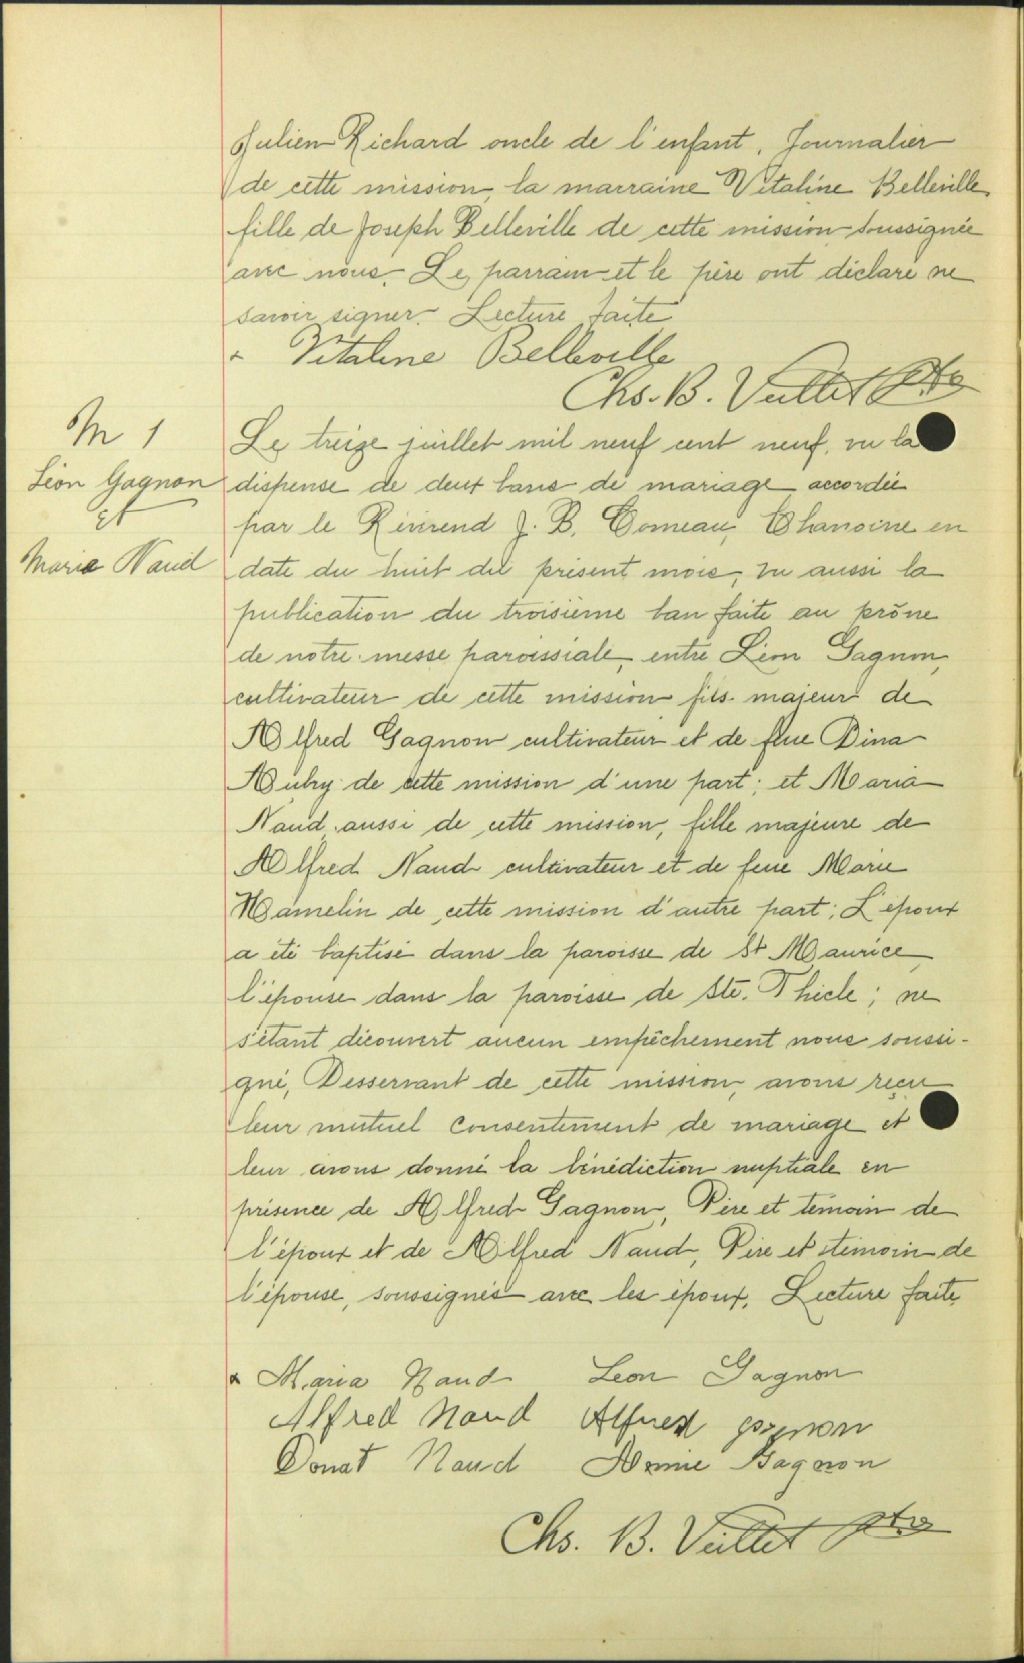 Julien Richard oncle de l'enfant. Journalier
de cette mission, la marraine Vitaline Belleville
fille de Joseph Belleville de cette mission soussignée
avec nous. Le parrain et le père ont déclaré ne
savoir signer. Lecture faite
x Vitaline Belleville
Chs. B. Veillet Ptre
M 1
Léon Gagnon
Et
Maria Naud
Le treize juillet mil neuf cent neuf, vu la
dispense de deux bans de mariage accordée
par le Révérend J. B. Comeau, Chanoine en
date du huit du présent mois, vu aussi la
publication du troisième ban faite au prône
de notre messe paroissiale, entre Léon Gagnon,
cultivateur de cette mission fils majeur de
Alfred Gagnon cultivateur et de feue Dina
Aubry de cette mission d'une part; et Maria
Naud, aussi de cette mission, fille majeure de
Alfred Naud cultivateur et de feue Marie
Hamelin de cette mission d'autre part; L'époux
a été baptisé dans la paroisse de St Maurice,
l'épouse dans la paroisse de Ste. Thècle; ne
s'étant découvert aucun empêchement nous soussi-
gné, Desservant de cette mission, avons reçu
leur mutuel consentement de mariage et
leur avons donné la bénédiction nuptiale en
présence de Alfred Gagnon, Père et témoin de
l'époux et de Alfred Naud, Père et témoin de
l'épouse, soussignés avec les époux. Lecture faite.
x Maria Naud Leon Gagnon
Alfred Naud Alfred gagnon
Donat Naud Annie Gagnon
Chs. B. Veillet ptre